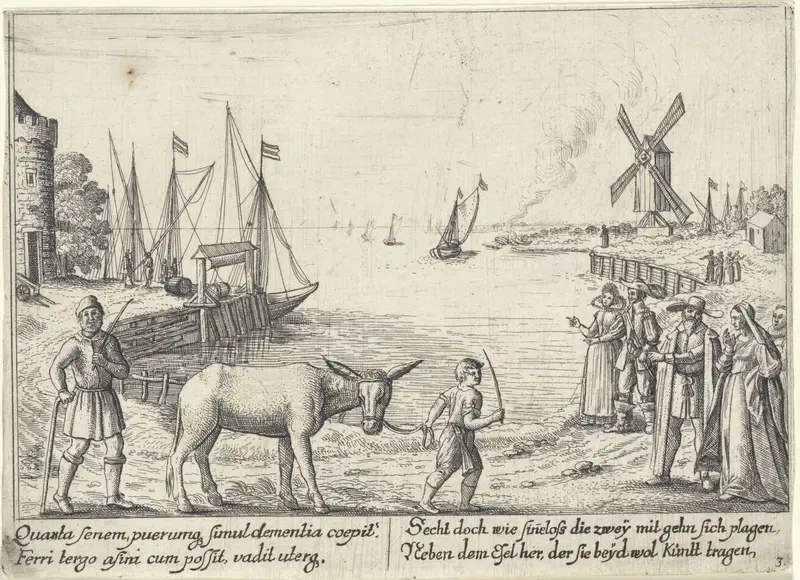 Quanta senem, puerumq, simul clementia coepit!
Ferri tergo asini cum possit, vadit uterq.
Secht doch wie sinelos die zweÿ mit gehn sich plagen,
Neben dem Esel her, der sie beÿd wol Küntt tragen,
3.